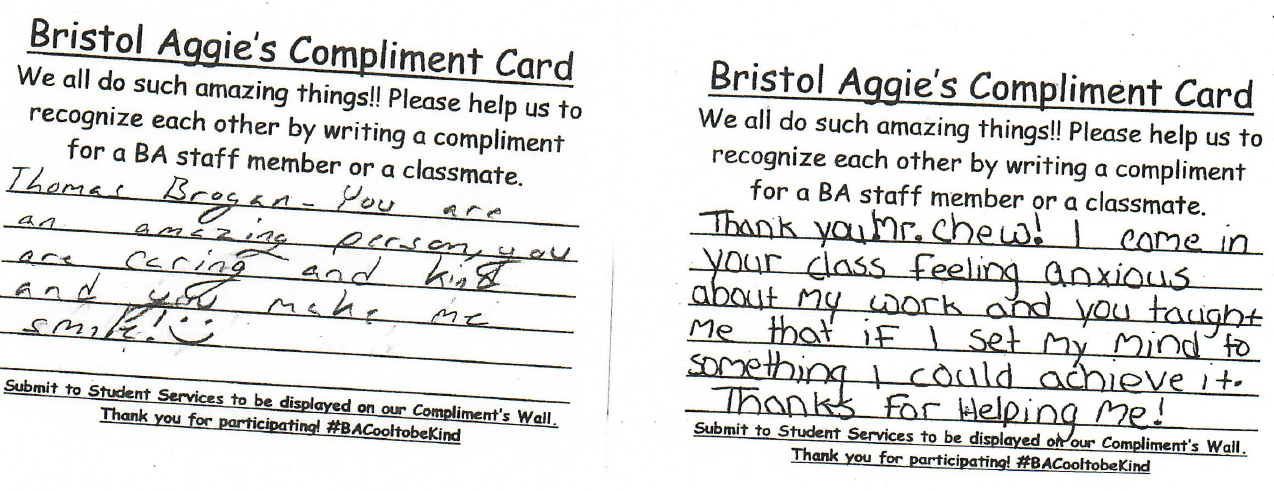 Bristol Aggie's Compliment Card
We all do such amazing things!! Please help us to
recognize each other by writing a compliment
for a BA staff member or a classmate.
Thomas Brogan - You are
an amazing person, you
are caring and kind
and you make me
smile! :)
Submit to Student Services to be displayed on our Compliment's Wall.
Thank you for participating! #BACooltobeKind
Bristol Aggie's Compliment Card
We all do such amazing things!! Please help us to
recognize each other by writing a compliment
for a BA staff member or a classmate.
Thank you Mr. Chew! I come in
your class feeling anxious
about my work and you taught
me that if I set my mind to
something I could achieve it.
Thanks for Helping Me!
Submit to Student Services to be displayed on our Compliment's Wall.
Thank you for participating! #BACooltobeKind